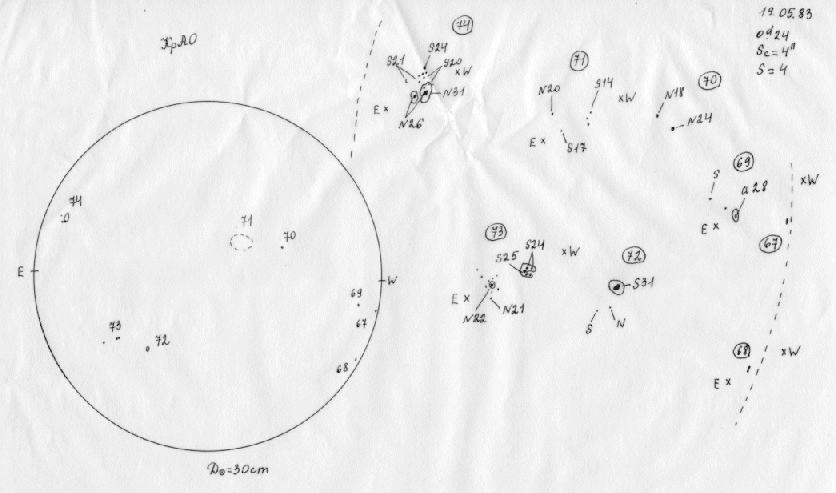 КрАО
19.05.83
0924
Sc=4"
S=4
74
S24
S21
S20
xW
N31
Ex
N26
71
N20
S14
xW
Ex
S17
70
N18
N24
69
S
a28
xW
Ex
67
73
S24
S25
xW
Ex
N22
N21
72
S31
S
N
68
xW
Ex
74
71
70
E
W
69
67
73
72
68
D⊙=30cm